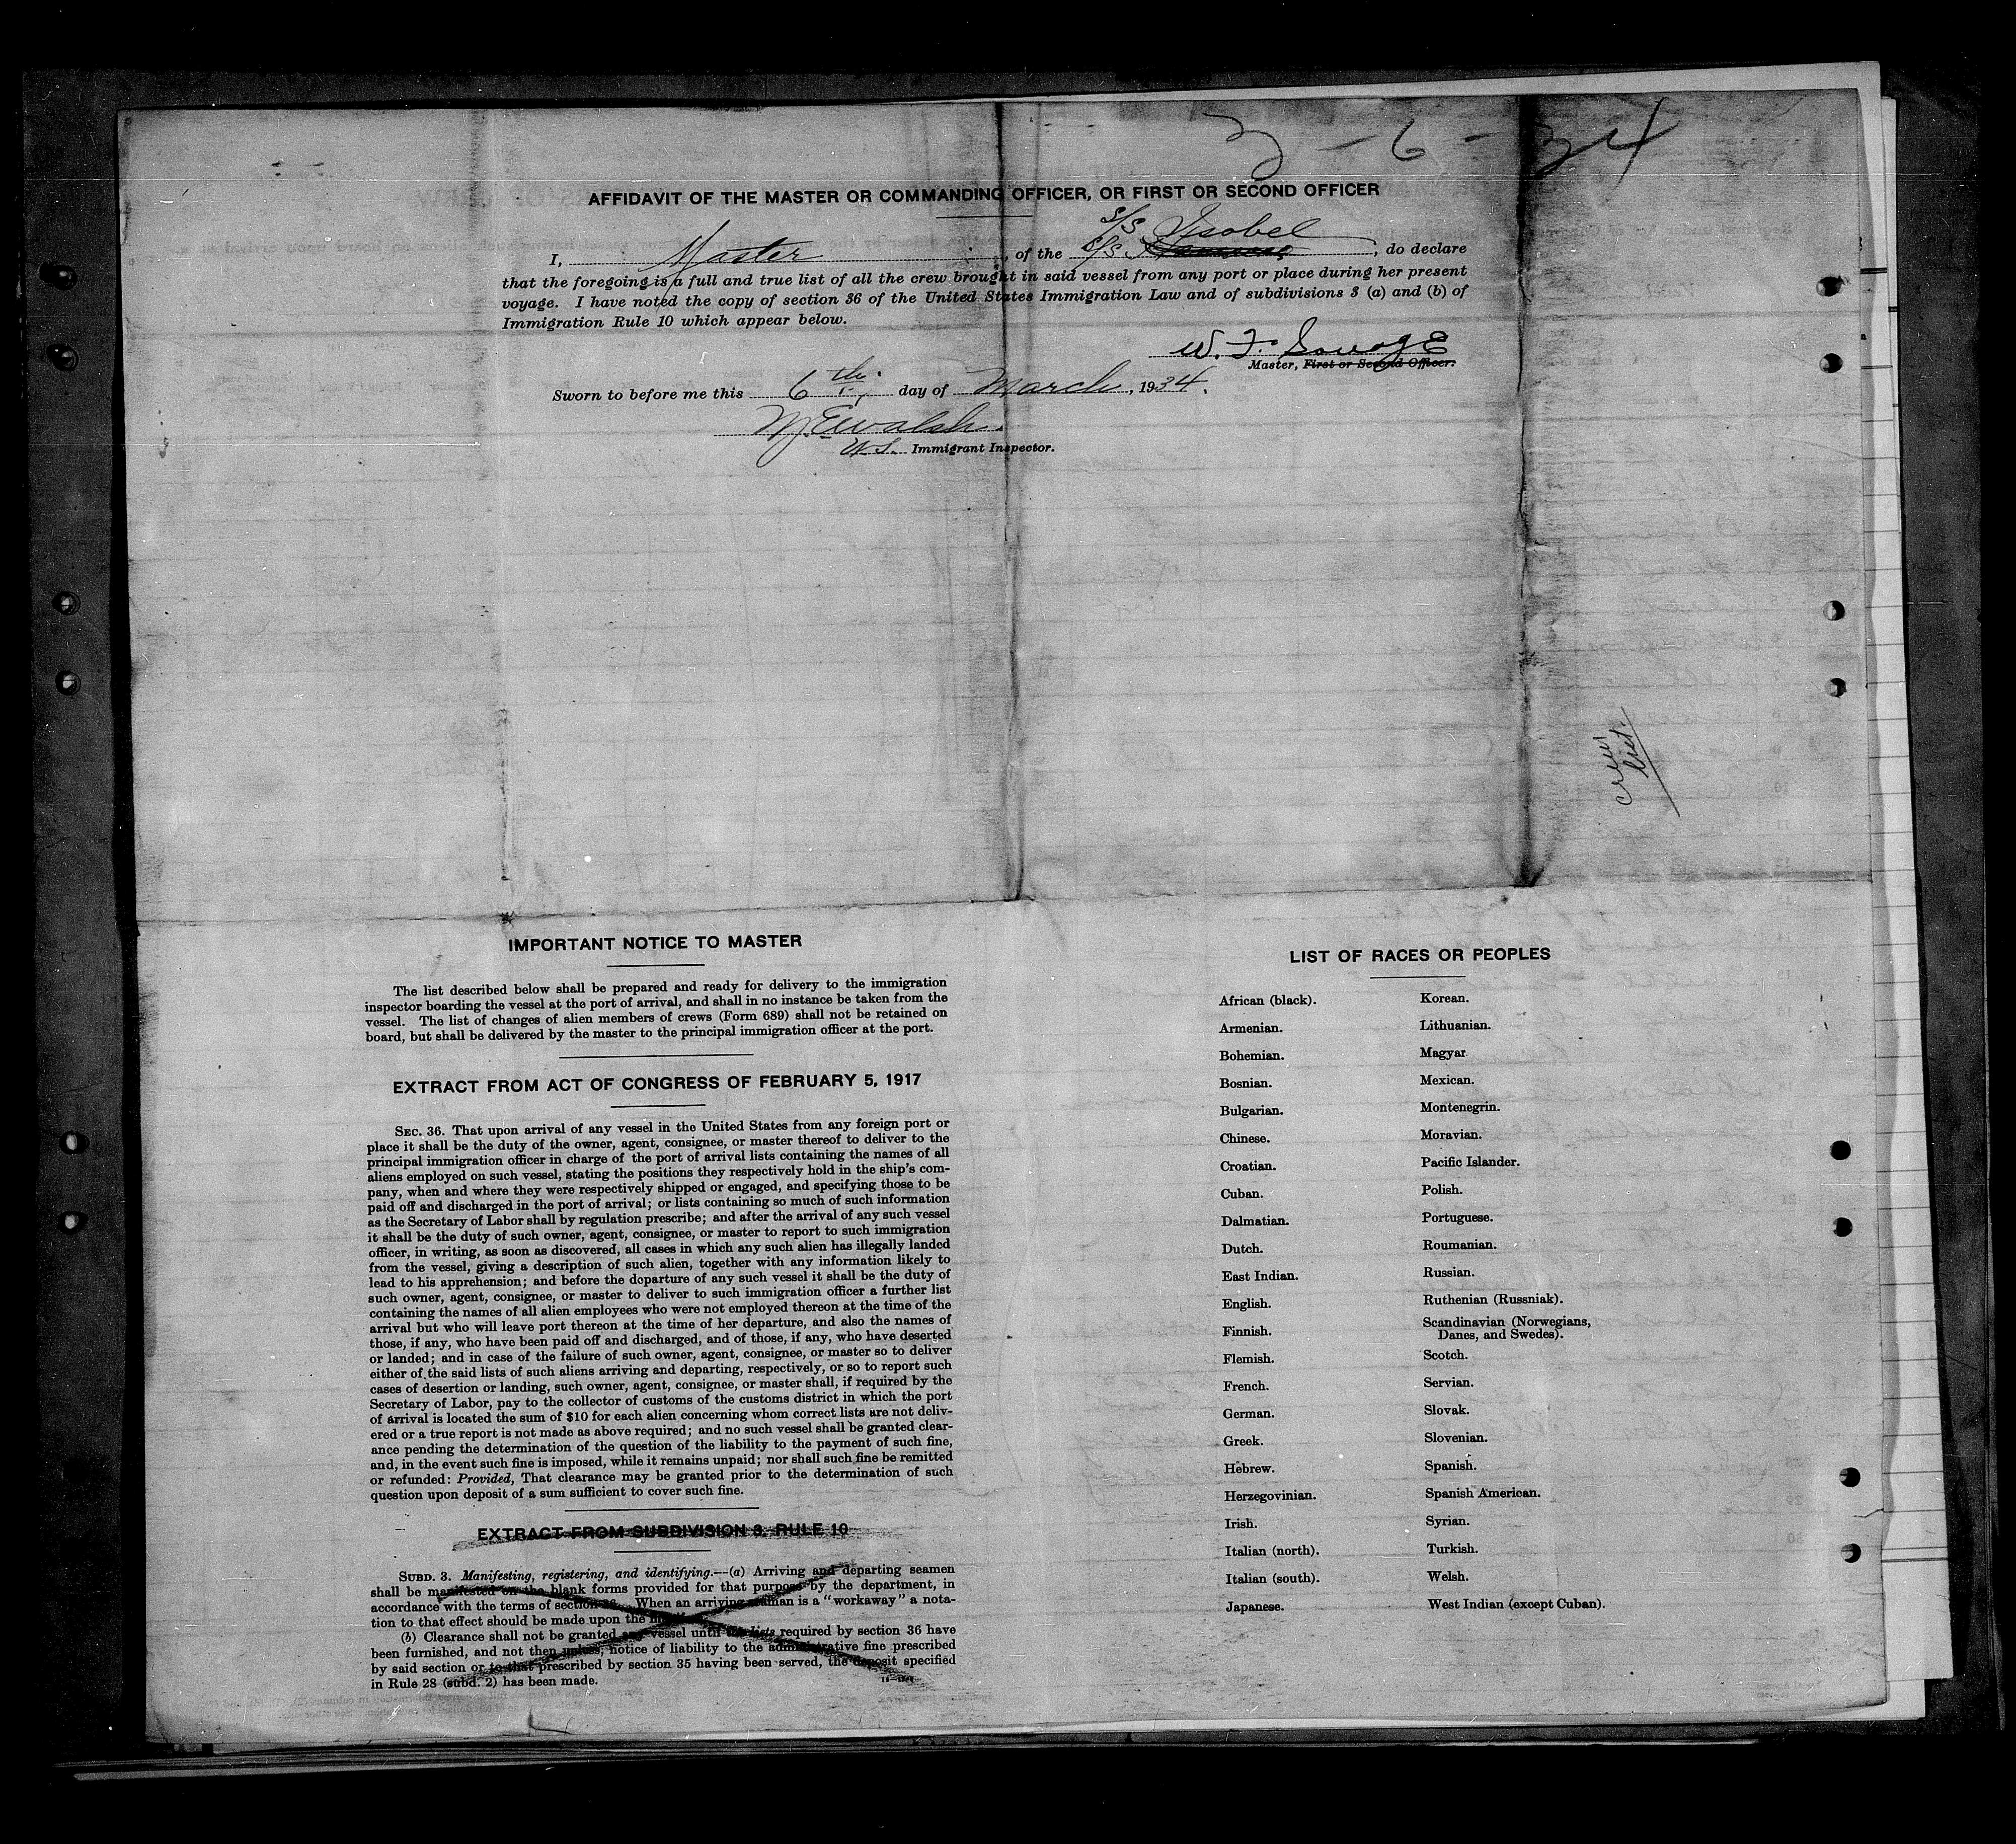 3-6-34
AFFIDAVIT OF THE MASTER OR COMMANDING OFFICER, OR FIRST OR SECOND OFFICER
S/S Isobel
I, Master, of the S/S, do declare
that the foregoing is a full and true list of all the crew brought in said vessel from any port or place during her present
voyage. I have noted the copy of section 36 of the United States Immigration Law and of subdivisions 3 (a) and (b) of
Immigration Rule 10 which appear below.
W. F. Savage
Master, First or Second Officer.
Sworn to before me this 6th, day of March, 1934.
M. E. Walsh.
U.S. Immigrant Inspector.
crew
list.
IMPORTANT NOTICE TO MASTER
The list described below shall be prepared and ready for delivery to the immigration
inspector boarding the vessel at the port of arrival, and shall in no instance be taken from the
vessel. The list of changes of alien members of crews (Form 689) shall not be retained on
board, but shall be delivered by the master to the principal immigration officer at the port.
EXTRACT FROM ACT OF CONGRESS OF FEBRUARY 5, 1917
SEC. 36. That upon arrival of any vessel in the United States from any foreign port or
place it shall be the duty of the owner, agent, consignee, or master thereof to deliver to the
principal immigration officer in charge of the port of arrival lists containing the names of all
aliens employed on such vessel, stating the positions they respectively hold in the ship's com-
pany, when and where they were respectively shipped or engaged, and specifying those to be
paid off and discharged in the port of arrival; or lists containing so much of such information
as the Secretary of Labor shall by regulation prescribe; and after the arrival of any such vessel
it shall be the duty of such owner, agent, consignee, or master to report to such immigration
officer, in writing, as soon as discovered, all cases in which any such alien has illegally landed
from the vessel, giving a description of such alien, together with any information likely to
lead to his apprehension; and before the departure of any such vessel it shall be the duty of
such owner, agent, consignee, or master to deliver to such immigration officer a further list
containing the names of all alien employees who were not employed thereon at the time of the
arrival but who will leave port thereon at the time of her departure, and also the names of
those, if any, who have been paid off and discharged, and of those, if any, who have deserted
or landed; and in case of the failure of such owner, agent, consignee, or master so to deliver
either of the said lists of such aliens arriving and departing, respectively, or so to report such
cases of desertion or landing, such owner, agent, consignee, or master shall, if required by the
Secretary of Labor, pay to the collector of customs of the customs district in which the port
of arrival is located the sum of $10 for each alien concerning whom correct lists are not deliv-
ered or a true report is not made as above required; and no such vessel shall be granted clear-
ance pending the determination of the question of the liability to the payment of such fine,
and, in the event such fine is imposed, while it remains unpaid; nor shall such fine be remitted
or refunded: Provided, That clearance may be granted prior to the determination of such
question upon deposit of a sum sufficient to cover such fine.
EXTRACT FROM SUBDIVISION 3, RULE 10
SUBD. 3. Manifesting, registering, and identifying.—(a) Arriving and departing seamen
shall be manifested on the blank forms provided for that purpose by the department, in
accordance with the terms of section 36. When an arriving seaman is a "workaway" a nota-
tion to that effect should be made upon the
(b) Clearance shall not be granted any vessel until the lists required by section 36 have
been furnished, and not then unless, notice of liability to the administrative fine prescribed
by said section or to that prescribed by section 35 having been served, the deposit specified
in Rule 28 (subd. 2) has been made.
LIST OF RACES OR PEOPLES
African (black).
Armenian.
Bohemian.
Bosnian.
Bulgarian.
Chinese.
Croatian.
Cuban.
Dalmatian.
Dutch.
East Indian.
English.
Finnish.
Flemish.
French.
German.
Greek.
Hebrew.
Herzegovinian.
Irish.
Italian (north).
Italian (south).
Japanese.
Korean.
Lithuanian.
Magyar
Mexican.
Montenegrin.
Moravian.
Pacific Islander.
Polish.
Portuguese.
Roumanian.
Russian.
Ruthenian (Russniak).
Scandinavian (Norwegians,
Danes, and Swedes).
Scotch.
Servian.
Slovak.
Slovenian.
Spanish.
Spanish American.
Syrian.
Turkish.
Welsh.
West Indian (except Cuban).